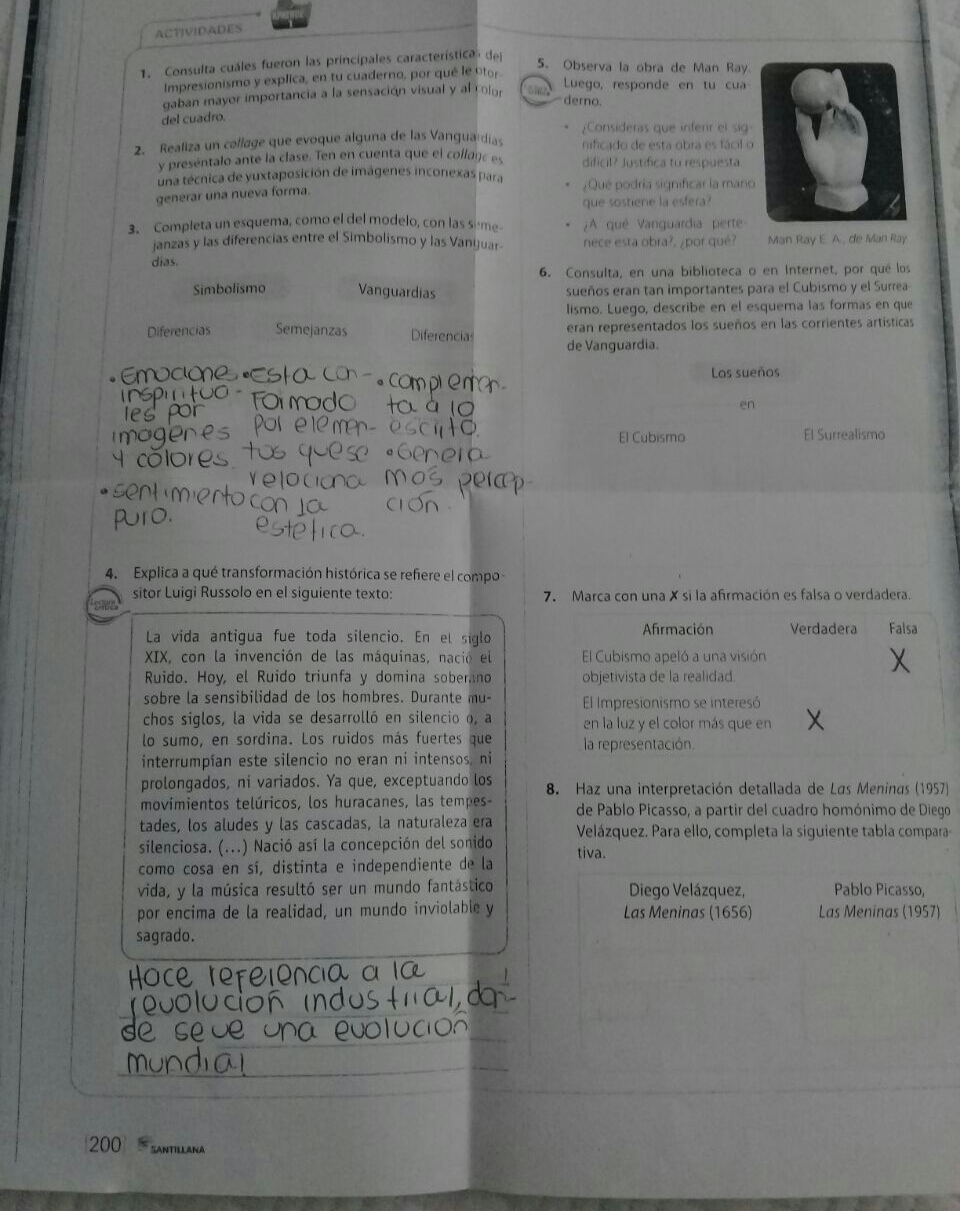 ACTIVIDADES
APRENDE
1
1. Consulta cuáles fueron las principales características del
Impresionismo y explica, en tu cuaderno, por qué le otor-
gaban mayor importancia a la sensación visual y al color
del cuadro.
2. Realiza un collage que evoque alguna de las Vanguardias
y preséntalo ante la clase. Ten en cuenta que el collage es
una técnica de yuxtaposición de imágenes inconexas para
generar una nueva forma.
3. Completa un esquema, como el del modelo, con las seme-
janzas y las diferencias entre el Simbolismo y las Vanguar-
dias.
Simbolismo Vanguardias
Diferencias Semejanzas Diferencias
• Emociones
inspirituo-
les por
imagenes
y colores
• sentimiento
puro.
• Esta con-
Formado
por elemen-
tos que se
relaciona
con la
estetica.
• complemen-
ta a lo
escrito.
• Genera
mos percep-
ción.
4. Explica a qué transformación histórica se refiere el compo-
sitor Luigi Russolo en el siguiente texto:
Lectura
crítica
La vida antigua fue toda silencio. En el siglo
XIX, con la invención de las máquinas, nació el
Ruido. Hoy, el Ruido triunfa y domina soberano
sobre la sensibilidad de los hombres. Durante mu-
chos siglos, la vida se desarrolló en silencio o, a
lo sumo, en sordina. Los ruidos más fuertes que
interrumpían este silencio no eran ni intensos, ni
prolongados, ni variados. Ya que, exceptuando los
movimientos telúricos, los huracanes, las tempes-
tades, los aludes y las cascadas, la naturaleza era
silenciosa. (...) Nació así la concepción del sonido
como cosa en sí, distinta e independiente de la
vida, y la música resultó ser un mundo fantástico
por encima de la realidad, un mundo inviolable y
sagrado.
Hace referencia a la
revolución industrial, don-
de se ve una evolución
mundial
200 SANTILLANA
5. Observa la obra de Man Ray.
Luego, responde en tu cua
derno.
• ¿Consideras que inferir el sig-
nificado de esta obra es fácil o
difícil? Justifica tu respuesta.
• ¿Qué podría significar la mano
que sostiene la esfera?
• ¿A qué Vanguardia perte-
nece esta obra?, ¿por qué?
Man Ray E. A., de Man Ray
6. Consulta, en una biblioteca o en Internet, por qué los
sueños eran tan importantes para el Cubismo y el Surrea-
lismo. Luego, describe en el esquema las formas en que
eran representados los sueños en las corrientes artísticas
de Vanguardia.
Los sueños
en
El Cubismo El Surrealismo
7. Marca con una X si la afirmación es falsa o verdadera.
Afirmación Verdadera Falsa
El Cubismo apeló a una visión
objetivista de la realidad. X
El Impresionismo se interesó
en la luz y el color más que en X
la representación.
8. Haz una interpretación detallada de Las Meninas (1957)
de Pablo Picasso, a partir del cuadro homónimo de Diego
Velázquez. Para ello, completa la siguiente tabla compara-
tiva.
Diego Velázquez, Pablo Picasso,
Las Meninas (1656) Las Meninas (1957)